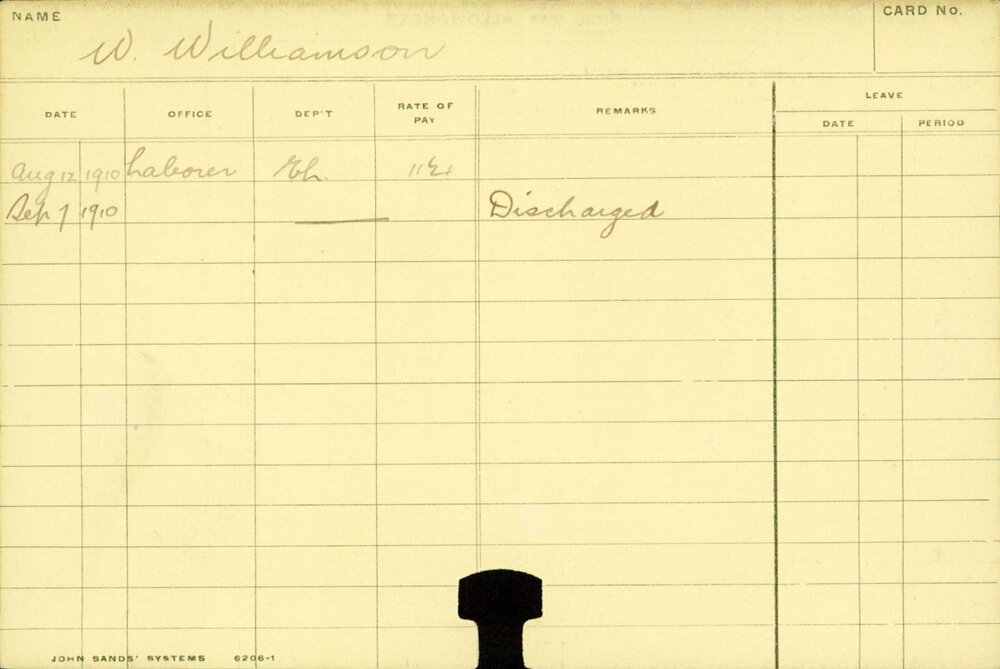 NAME
W. Williamson
CARD No.
DATE OFFICE DEP'T RATE OF PAY REMARKS LEAVE
DATE PERIOD
Aug 12 1910 Laborer Eh.
Sep 7 1910 Discharged
JOHN SANDS' SYSTEMS 6206-1